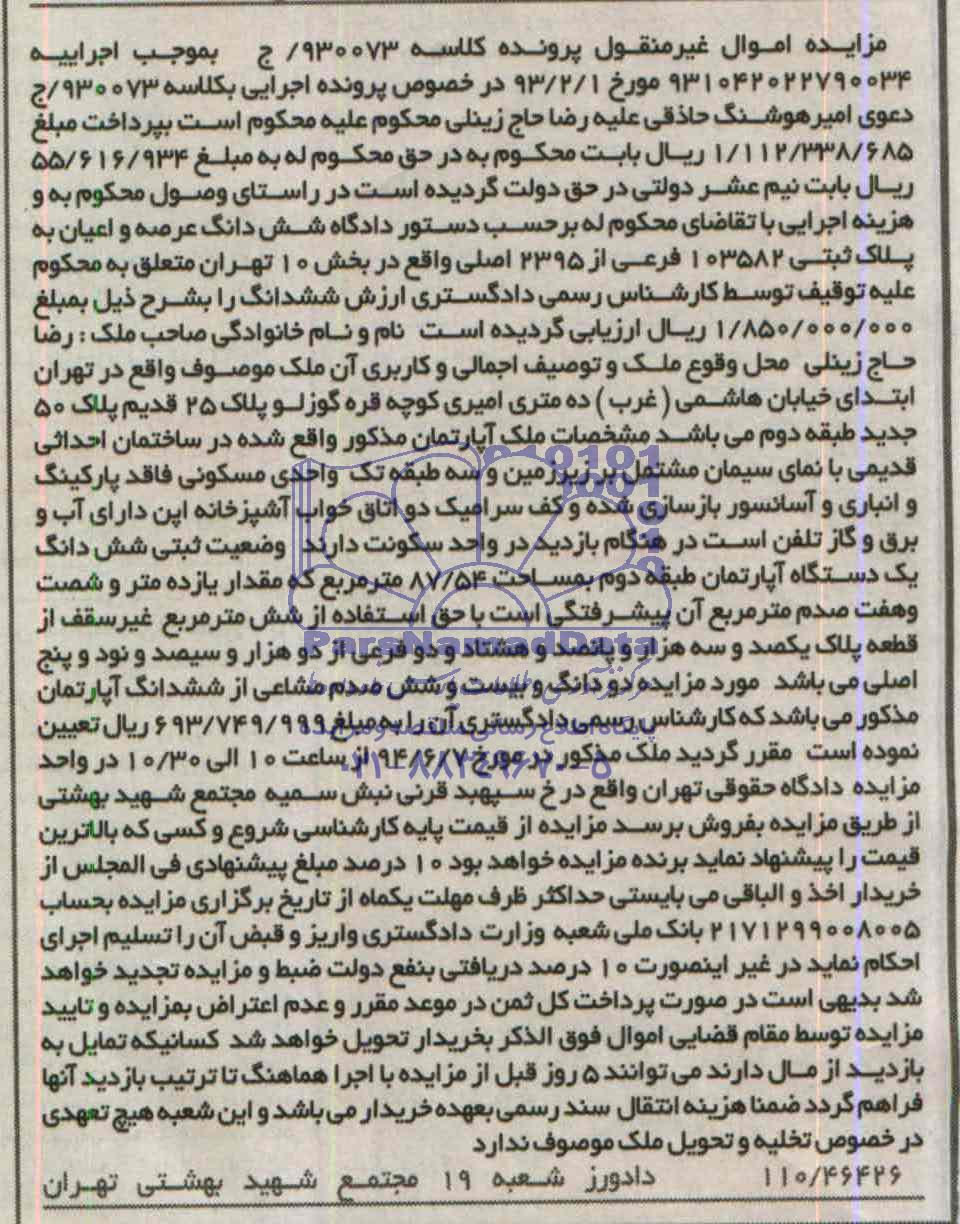 مزایده اموال غیرمنقول پرونده کلاسه ۹۳۰۰۷۳/ ج بموجب اجراییه
۹۳۱۰۴۲۰۲۲۷۹۰۰۳۴ مورخ ۹۳/۲/۱ در خصوص پرونده اجرایی بکلاسه ۹۳۰۰۷۳/ج
دعوی امیرهوشنگ حاذقی علیه رضا حاج زینلی محکوم علیه محکوم است بپرداخت مبلغ
۱/۱۱۲/۳۳۸/۶۸۵ ریال بابت محکوم به در حق محکوم له به مبلغ ۵۵/۶۱۶/۹۳۴
ریال بابت نیم عشر دولتی در حق دولت گردیده است در راستای وصول محکوم به و
هزینه اجرایی با تقاضای محکوم له برحسب دستور دادگاه شش دانگ عرصه و اعیان به
پلاک ثبتی ۱۰۳۵۸۲ فرعی از ۲۳۹۵ اصلی واقع در بخش ۱۰ تهران متعلق به محکوم
علیه توقیف توسط کارشناس رسمی دادگستری ارزش ششدانگ را بشرح ذیل بمبلغ
۱/۸۵۰/۰۰۰/۰۰۰ ریال ارزیابی گردیده است نام و نام خانوادگی صاحب ملک : رضا
حاج زینلی محل وقوع ملک و توصیف اجمالی و کاربری آن ملک موصوف واقع در تهران
ابتدای خیابان هاشمی ( غرب ) ده متری امیری کوچه قره گوزلو پلاک ۲۵ قدیم پلاک ۵۰
جدید طبقه دوم می باشد مشخصات ملک آپارتمان مذکور واقع شده در ساختمان احداثی
قدیمی با نمای سیمان مشتمل بر زیرزمین و سه طبقه تک واحدی مسکونی فاقد پارکینگ
و انباری و آسانسور بازسازی شده و کف سرامیک دو اتاق خواب آشپزخانه اپن دارای آب و
برق و گاز تلفن است در هنگام بازدید در واحد سکونت دارند وضعیت ثبتی شش دانگ
یک دستگاه آپارتمان طبقه دوم بمساحت ۸۷/۵۴ مترمربع که مقدار یازده متر و شصت
وهفت صدم مترمربع آن پیشرفتگی است با حق استفاده از شش مترمربع غیرسقف از
قطعه پلاک یکصد و سه هزار و پانصد و هشتاد و دو فرعی از دو هزار و سیصد و نود و پنج
اصلی می باشد مورد مزایده دو دانگ و بیست و شش صدم مشاعی از ششدانگ آپارتمان
مذکور می باشد که کارشناس رسمی دادگستری آن را به مبلغ ۶۹۳/۷۴۹/۹۹۹ ریال تعیین
نموده است مقرر گردید ملک مذکور در مورخ ۹۴/۶/۷ از ساعت ۱۰ الی ۱۰/۳۰ در واحد
مزایده دادگاه حقوقی تهران واقع در خ سپهبد قرنی نبش سمیه مجتمع شهید بهشتی
از طریق مزایده بفروش برسد مزایده از قیمت پایه کارشناسی شروع و کسی که بالاترین
قیمت را پیشنهاد نماید برنده مزایده خواهد بود ۱۰ درصد مبلغ پیشنهادی فی المجلس از
خریدار اخذ و الباقی می بایستی حداکثر ظرف مهلت یکماه از تاریخ برگزاری مزایده بحساب
۲۱۷۱۲۹۹۰۰۸۰۰۵ بانک ملی شعبه وزارت دادگستری واریز و قبض آن را تسلیم اجرای
احکام نماید در غیر اینصورت ۱۰ درصد دریافتی بنفع دولت ضبط و مزایده تجدید خواهد
شد بدیهی است در صورت پرداخت کل ثمن در موعد مقرر و عدم اعتراض بمزایده و تایید
مزایده توسط مقام قضایی اموال فوق الذکر بخریدار تحویل خواهد شد کسانیکه تمایل به
بازدید از مال دارند می توانند ۵ روز قبل از مزایده با اجرا هماهنگ تا ترتیب بازدید آنها
فراهم گردد ضمنا هزینه انتقال سند رسمی بعهده خریدار می باشد و این شعبه هیچ تعهدی
در خصوص تخلیه و تحویل ملک موصوف ندارد
۱۱۰/۴۶۴۲۶ دادورز شعبه ۱۹ مجتمع شهید بهشتی تهران
ParsNamadData